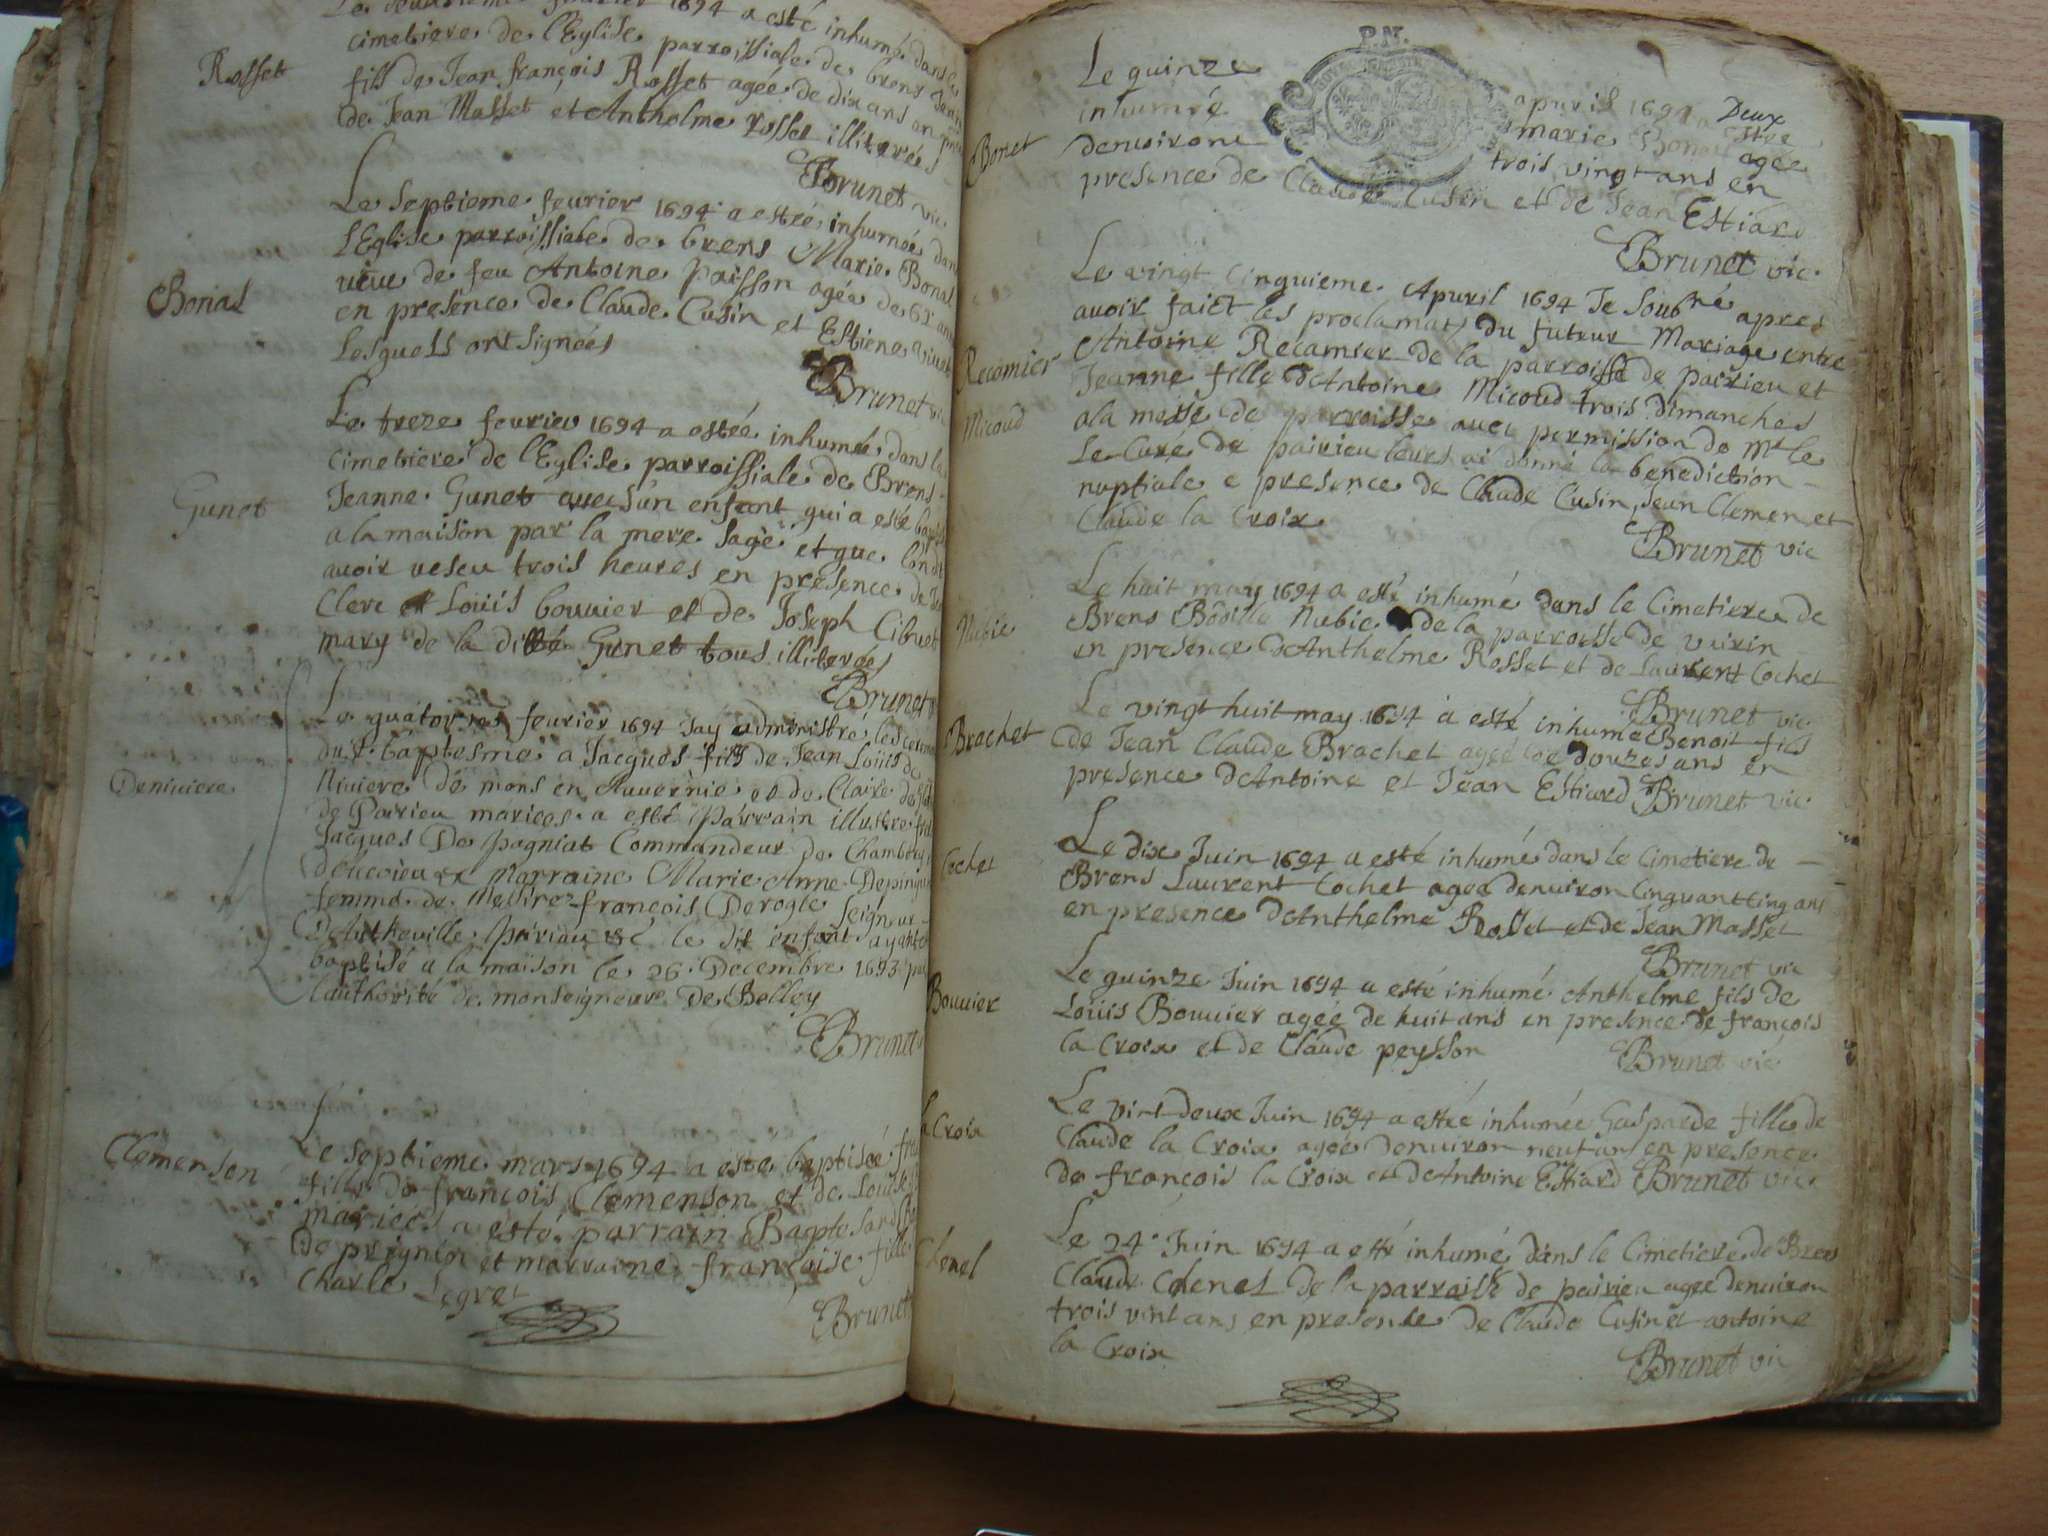 Rosset
fevrier 1694 a esté inhumé dans le
cimetiere de l'Eglise parroissiale de brens Jean
fils de Jean françois Rosset agée de dix ans en
de Jean Masset et Anthelme rosset illiterés
Brunet vic
Bonas
Le Septieme feurier 1694 a estée inhumée dans
l'Eglise parroissiale de brens Marie Bonas
veuve de feu Antoine paisson agée de 61 ans
en presence de Claude Cusin et Estiene vinet
lesquels ont signées
Brunet vic
Gunet
Le treze feurier 1694 a estée inhumée dans la
cimetiere de l'Eglise parroissiale de Brens
Jeanne Gunet avec sun enfant qui a esté
a la maison par la mere sage et que l'on dit
avoir vescu trois heures en presence de
Clerc et Loüis bouuier et de Joseph Cibuet
mary de la ditte Gunet tous illiterées
Brunet v
Deniviere
Le quatorzes feurier 1694 Jay administré les
du St baptesme a Jacques fils de Jean Loüis de
Niviere de mons en Auuernie et de Claire
de Pairieu mariees a esté Parrain illustre
Jacques De pagniat Commandeur de Chambery
et Marraine Marie Anne Depingon
femme de Messire françois Derogle seigneur
le dit enfant ayant
baptisé a la maison le 26 Decembre 1693 par
l'authorité de monseigneur De Belley
Brunet
Clemenson
Le septieme mars 1694 a esté baptisée
fille de françois Clemenson et de Louise
mariées a esté parrain Bapte
de prignin et marraine françoise fille
Charle Legret
Brunet
P.N.
Deux
Bonet
Le quinze apuril 1694 a Estée
inhumée marie Bonas agée
denuirone trois vingt ans en
presence de Claude Cusin et de Jean Estiard
Brunet vic
Recomier
Micoud
Le vingt Cinquieme Apuril 1694 Je Soubné apres
auoir faict les proclamats du futeur Mariage entre
Antoine Recamier de la parroisse de pairieu et
Jeanne fille d'Antoine Micoud trois dimanches
a la messe de parroisse auec permission de Mr le
Le Cure de pairieu leurs ai donné la benediction
nuptiale e presence de Claude Cusin, Jean Clemen et
Claude la Croix
Brunet vic
Nubie
Le huit may 1694 a esté inhumé dans le Cimetiere de
Brens Nubie de la parroisse de virin
en presence d'Anthelme Rosset et de Laurent Cochet
Brunet vic
Brachet
Le vingt huit may 1694 a esté inhumé Benoit fils
de Jean Claude Brachet agée de douzes ans en
presence d'Antoine et Jean Estiard Brunet vic
Cochet
Le dix Juin 1694 a esté inhumé dans le Cimetiere de
Brens Laurent Cochet agee denuiron Cinquant Cinq ans
en presence d'Anthelme Rosset et de Jean Masset
Brunet vic
Bouuier
Le quinze Juin 1694 a esté inhumé Anthelme fils de
Loüis Bouuier agée de huit ans en presence de françois
la Croix et de Claude peysson Brunet vic
la Croix
Le vint deux Juin 1694 a estée inhumée Gasparde fille de
Claude la Croix agée denuiron neuf ans en presence
de françois la Croix et d'Antoine Estiard Brunet vic
Chenel
Le 24e Juin 1694 a esté inhumé dans le Cimetiere de Brens
Claude Chenel de la parroisse de pairieu agee denuiron
trois vint ans en presente de Claude Cusin et antoine
la Croix
Brunet vic